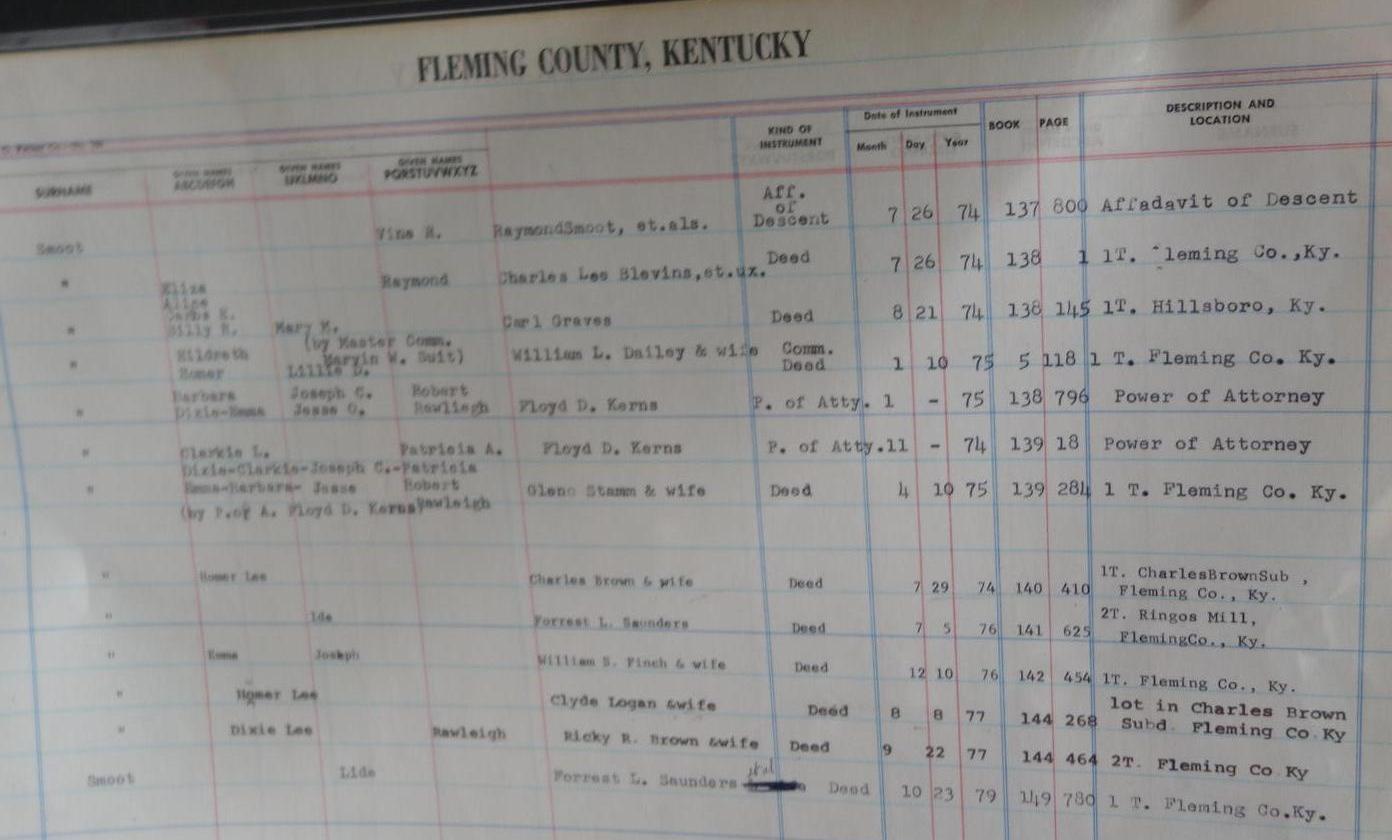 FLEMING COUNTY, KENTUCKY
SURNAME GIVEN NAMES ABCDEFGH GIVEN NAMES IJKLMNO GIVEN NAMES PQRSTUVWXYZ KIND OF INSTRUMENT Date of Instrument Month Day Year BOOK PAGE DESCRIPTION AND LOCATION
Smoot Vina R. RaymondSmoot, et.als. Aff. of Descent 7 26 74 137 800 Affadavit of Descent
" Raymond Charles Lee Blevins,et.ux. Deed 7 26 74 138 1 1T. leming Co.,Ky.
Eliza
Alice
" Billy R. Mary M. Carl Graves Deed 8 21 74 138 145 1T. Hillsboro, Ky.
(by Master Comm.
" Hildreth Marvin W. Suit) William L. Dailey & wife Comm. Deed 1 10 75 5 118 1 T. Fleming Co. Ky.
Homer Lillie D.
Barbara Joseph C. Robert
" Dixie-Emma Jesse C. Rawliegh Floyd D. Kerns P. of Atty. 1 - 75 138 796 Power of Attorney
" Clarkie L. Patricia A. Floyd D. Kerns P. of Atty. 11 - 74 139 18 Power of Attorney
Dixie-Clarkie-Joseph C.-Patricia
" Emma-Barbara- Jesse Robert Glenc Stamm & wife Deed 4 10 75 139 284 1 T. Fleming Co. Ky.
(by P.of A. Floyd D. Kerns) Rawleigh
" Homer Lee Charles Brown & wife Deed 7 29 74 140 410 1T. CharlesBrownSub ,
Fleming Co., Ky.
" Ida Forrest L. Saunders Deed 7 5 76 141 625 2T. Ringos Mill,
FlemingCo., Ky.
" Emma Joseph William S. Finch & wife Deed 12 10 76 142 454 1T. Fleming Co., Ky.
" Homer Lee Clyde Logan &wife Deed 8 8 77 144 268 lot in Charles Brown
Subd. Fleming Co Ky
" Dixie Lee Rawleigh Ricky R. Brown &wife Deed 9 22 77 144 464 2T. Fleming Co Ky
Smoot Lida Forrest L. Saunders Deed 10 23 79 149 780 1 T. Fleming Co.Ky.